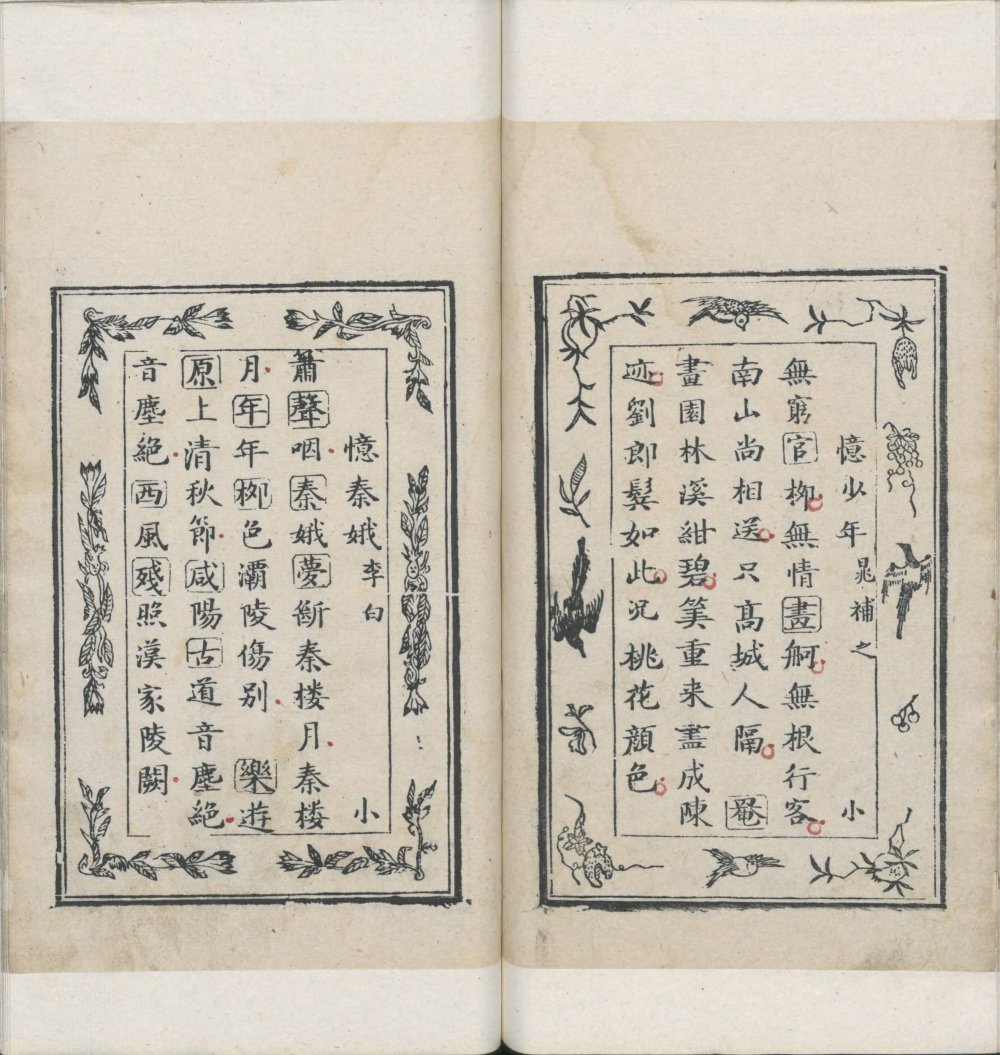 憶少年 晁補之 小
無窮官栁無情畫舸無根行客
南山尚相送只髙城人隔 罨
畫園林溪紺碧筭重来盡成陳
迹劉郎鬂如此况桃花顔色
憶秦娥 李白 小
簫聲咽秦娥夢断秦楼月秦楼
月年年栁色灞陵傷别 樂遊
原上清秋節咸陽古道音塵絶
音塵絶西風殘照漢家陵闕